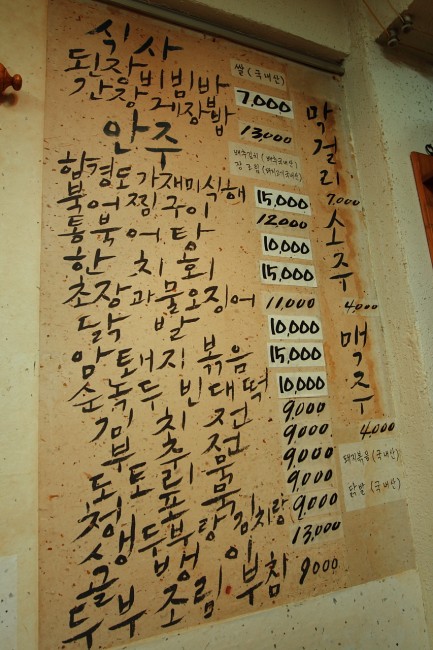 식사
쌀(국내산)
된장비빔밥 7,000
간장게장밥 13,000
안주
배추김치(배추국내산)
함경도가재미식해 15,000
북어찜구이 12,000
통북어탕 10,000
한치회 15,000
초장과물오징어 11,000
닭발 10,000
암퇘지볶음 15,000
순녹두빈대떡 10,000
김치전 9,000
부추전 9,000
도토리묵 9,000
청포묵 9,000
생두부랑김치랑 9,000
골뱅이 13,000
두부조림.부침 9000
막걸리 7,000
소주 4,000
맥주 4,000
돼지볶음(국내산)
닭발(국내산)